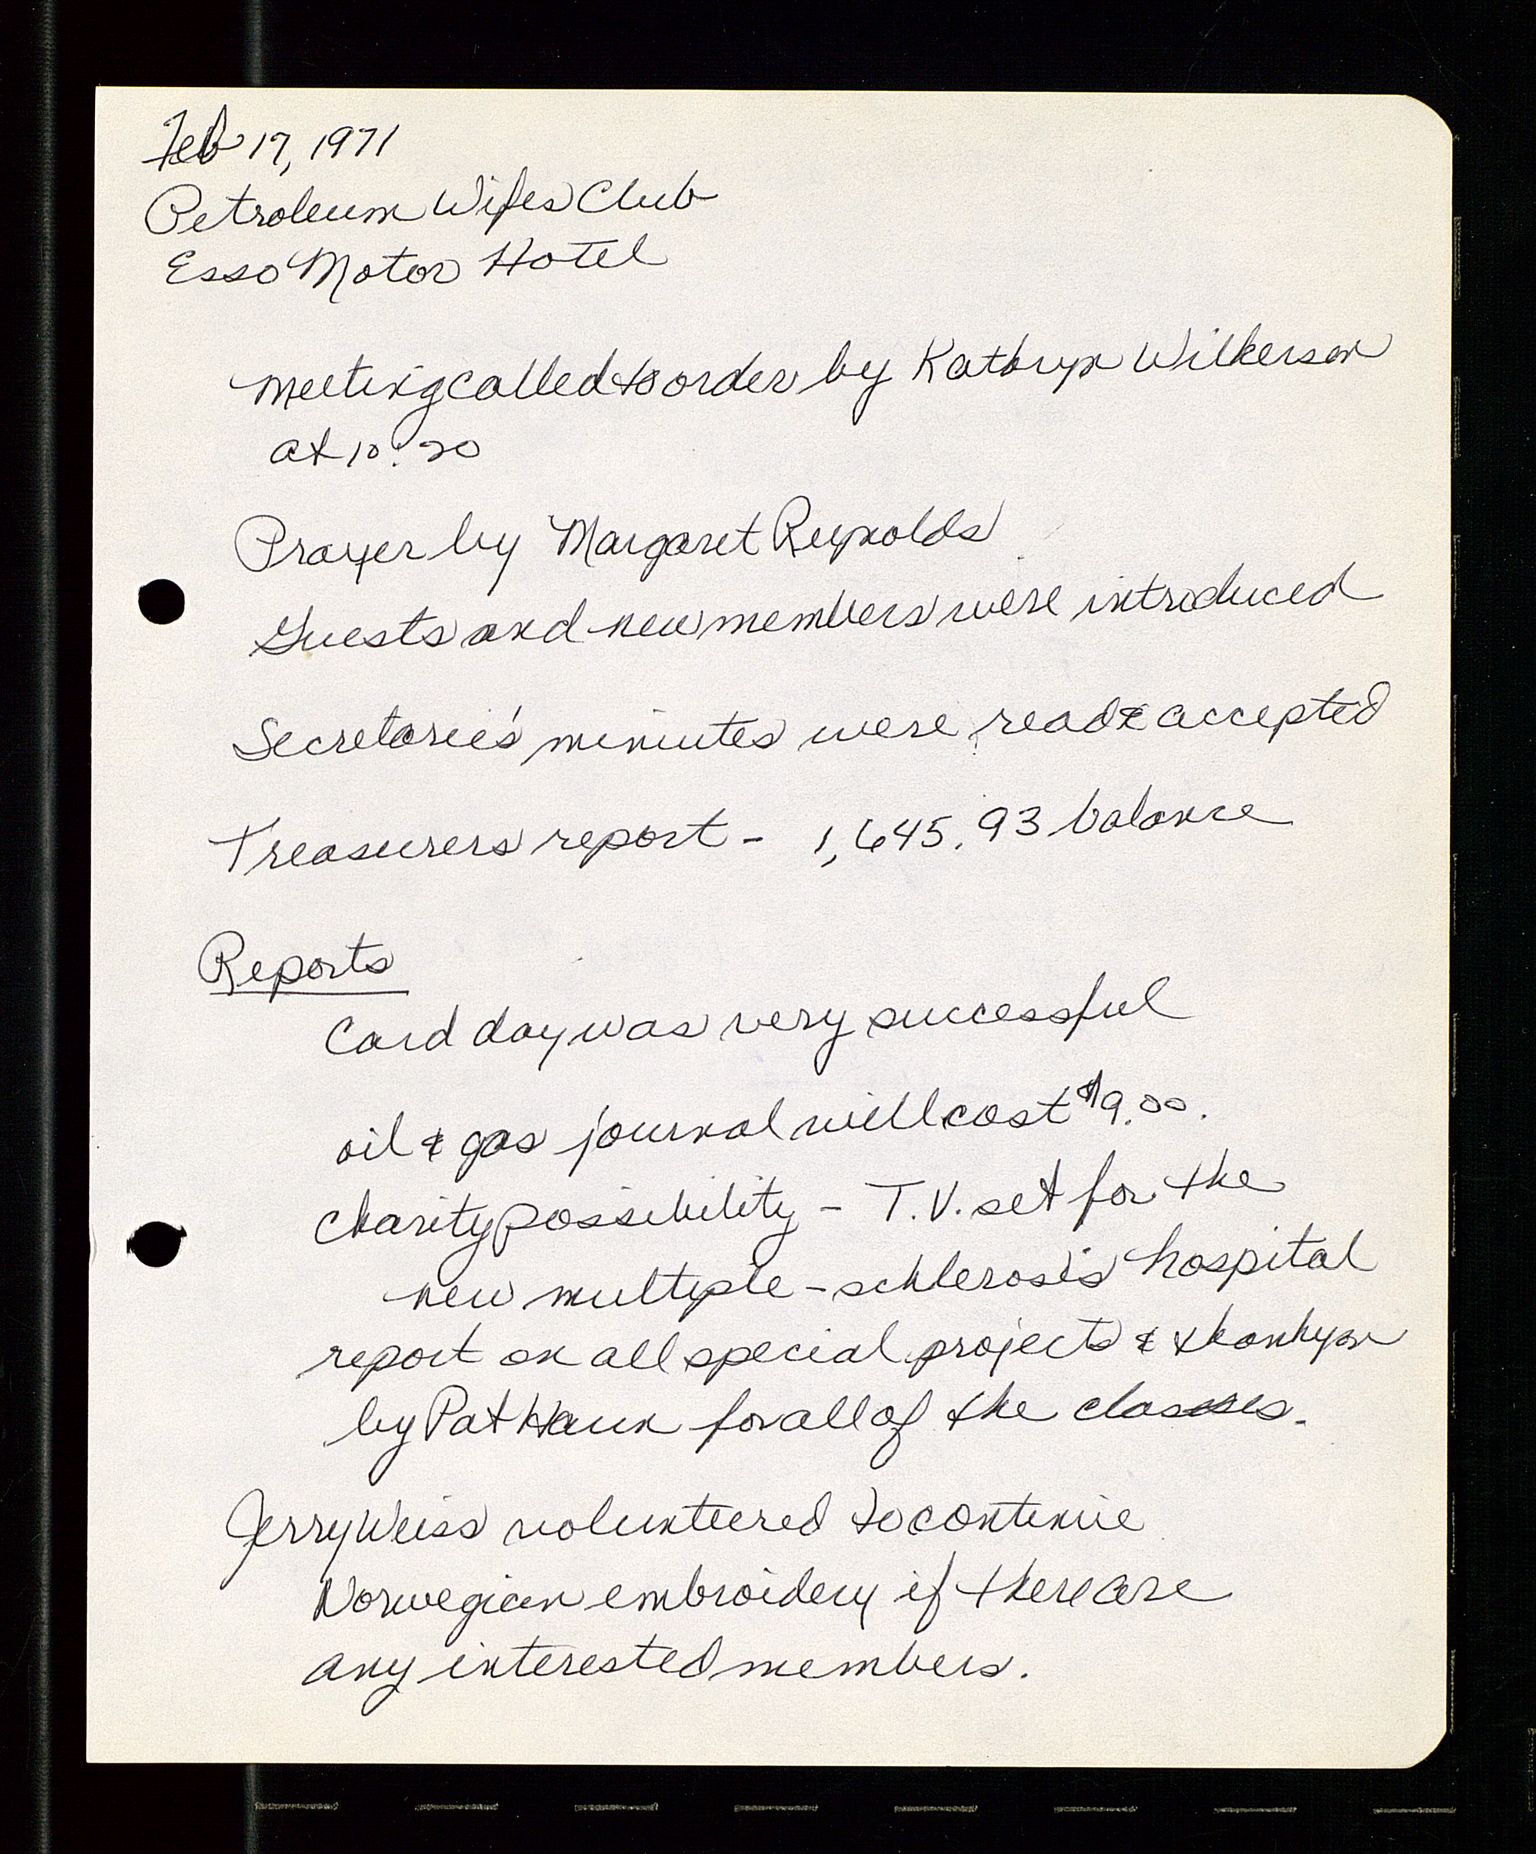 Feb 17, 1971
Petroleum Wifes Club
Esso Motor Hotel
Meeting called to order by Kathryn Wilkerson
at 10:20
Prayer by Margaret Reynolds
Guests and new members were introduced
Secretarie's minutes were read & accepted
Treasurers report - 1,645.93 balance
Reports
Card day was very successful
oil & gas journal will cost $9.00.
charity possibility - T.V. set for the
new multiple-schlerosis hospital
report on all special projects & thankyou
by Pat Haun for all of the classes.
Jerry Weiss volunteered to continue
Norwegian embroidery if there are
any interested members.